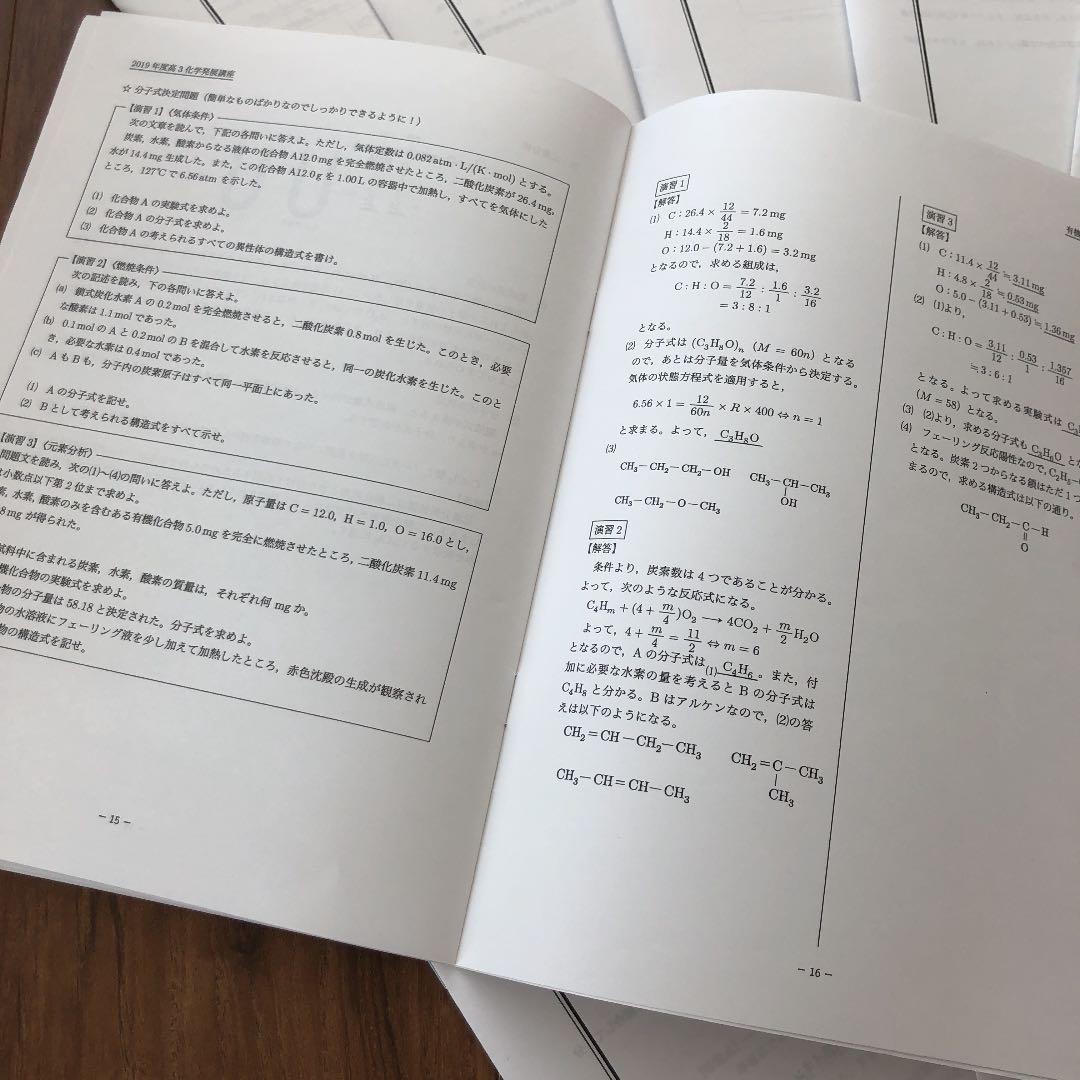 2019年度高3化学発展講座
☆ 分子式決定問題（簡単なものばかりなのでしっかりできるように！）
【演習1】〈気体条件〉
次の文章を読んで，下記の各問いに答えよ。ただし，気体定数は 0.082 atm・L/(K・mol) とする。
炭素，水素，酸素からなる液体の化合物 A12.0 mg を完全燃焼させたところ，二酸化炭素が 26.4 mg,
水が 14.4 mg 生成した。また，この化合物 A12.0 g を 1.00 L の容器中で加熱し，すべてを気体にした
ところ，127℃で 6.56 atm を示した。
(1) 化合物 A の実験式を求めよ。
(2) 化合物 A の分子式を求めよ。
(3) 化合物 A の考えられるすべての異性体の構造式を書け。
【演習2】〈燃焼条件〉
次の記述を読み，下の各問いに答えよ。
(a) 鎖式炭化水素 A の 0.2 mol を完全燃焼させると，二酸化炭素 0.8 mol を生じた。このとき，必要
な酸素は 1.1 mol であった。
(b) 0.1 mol の A と 0.2 mol の B を混合して水素を反応させると，同一の炭化水素を生じた。このと
き，必要な水素は 0.4 mol であった。
(c) A も B も，分子内の炭素原子はすべて同一平面上にあった。
(1) A の分子式を記せ。
(2) B として考えられる構造式をすべて示せ。
【演習3】〈元素分析〉
問題文を読み，次の(1)〜(4)の問いに答えよ。ただし，原子量は C = 12.0, H = 1.0, O = 16.0 とし，
小数点以下第 2 位まで求めよ。
素，水素，酸素のみを含むある有機化合物 5.0 mg を完全に燃焼させたところ，二酸化炭素 11.4 mg
8 mg が得られた。
試料中に含まれる炭素，水素，酸素の質量は，それぞれ何 mg か。
機化合物の実験式を求めよ。
物の分子量は 58.18 と決定された。分子式を求めよ。
物の水溶液にフェーリング液を少し加えて加熱したところ，赤色沈殿の生成が観察され
物の構造式を記せ。
− 15 −
演習1
【解答】
(1) C：26.4 × 12/44 = 7.2 mg
H：14.4 × 2/18 = 1.6 mg
O：12.0 − (7.2 + 1.6) = 3.2 mg
となるので，求める組成は，
C : H : O = 7.2/12 : 1.6/1 : 3.2/16
= 3 : 8 : 1
となる。
(2) 分子式は (C₃H₈O)ₙ (M = 60n) となる
ので，あとは分子量を気体条件から決定する。
気体の状態方程式を適用すると，
6.56 × 1 = 12/60n × R × 400 ⇔ n = 1
と求まる。よって，C₃H₈O
(3)
CH₃−CH₂−CH₂−OH CH₃−CH−CH₃
OH
CH₃−CH₂−O−CH₃
演習2
【解答】
条件より，炭素数は 4 つであることが分かる。
よって，次のような反応式になる。
C₄Hm + (4 + m/4)O₂ ⟶ 4CO₂ + m/2 H₂O
よって，4 + m/4 = 11/2 ⇔ m = 6
となるので，A の分子式は (1) C₄H₆。また，付
加に必要な水素の量を考えると B の分子式は
C₄H₈ と分かる。B はアルケンなので，(2)の答
えは以下のようになる。
CH₂=CH−CH₂−CH₃ CH₂=C−CH₃
CH₃
CH₃−CH=CH−CH₃
− 16 −
有機
演習3
【解答】
(1) C：11.4 × 12/44 ≒ 3.11 mg
H：4.8 × 2/18 ≒ 0.53 mg
O：5.0 − (3.11 + 0.53) ≒ 1.36 mg
(2) (1)より，
C : H : O = 3.11/12 : 0.53/1 : 1.357/16
= 3 : 6 : 1
となる。よって求める実験式は
(M = 58) となる。
(3) (2)より，求める分子式も C₃H₆O とな
(4) フェーリング反応陽性なので，C₂H₅−
となる。炭素 2 つからなる鎖はただ 1つ
まるので，求める構造式は以下の通り。
CH₃−CH₂−C−H
O